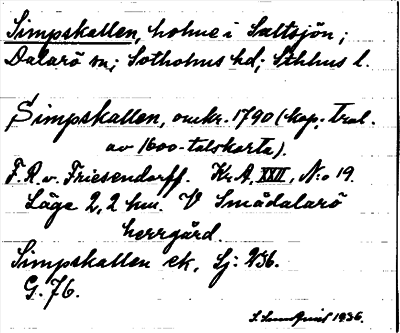 Simpskallen, holme i Saltsjön;
Dalarö sn; Sotholms hd; Sthlms l.
Simpskallen, omkr. 1790 (kop. trol.
av 1600-talskarta).
F. R. v. Friesendorff. Kr. A, XXII, N:o 19.
Läge 2,2 hm. V Smådalarö
herrgård.
Simpskallen ek. Sj: 236.
G. 76.
S. Lundqvist 1936.